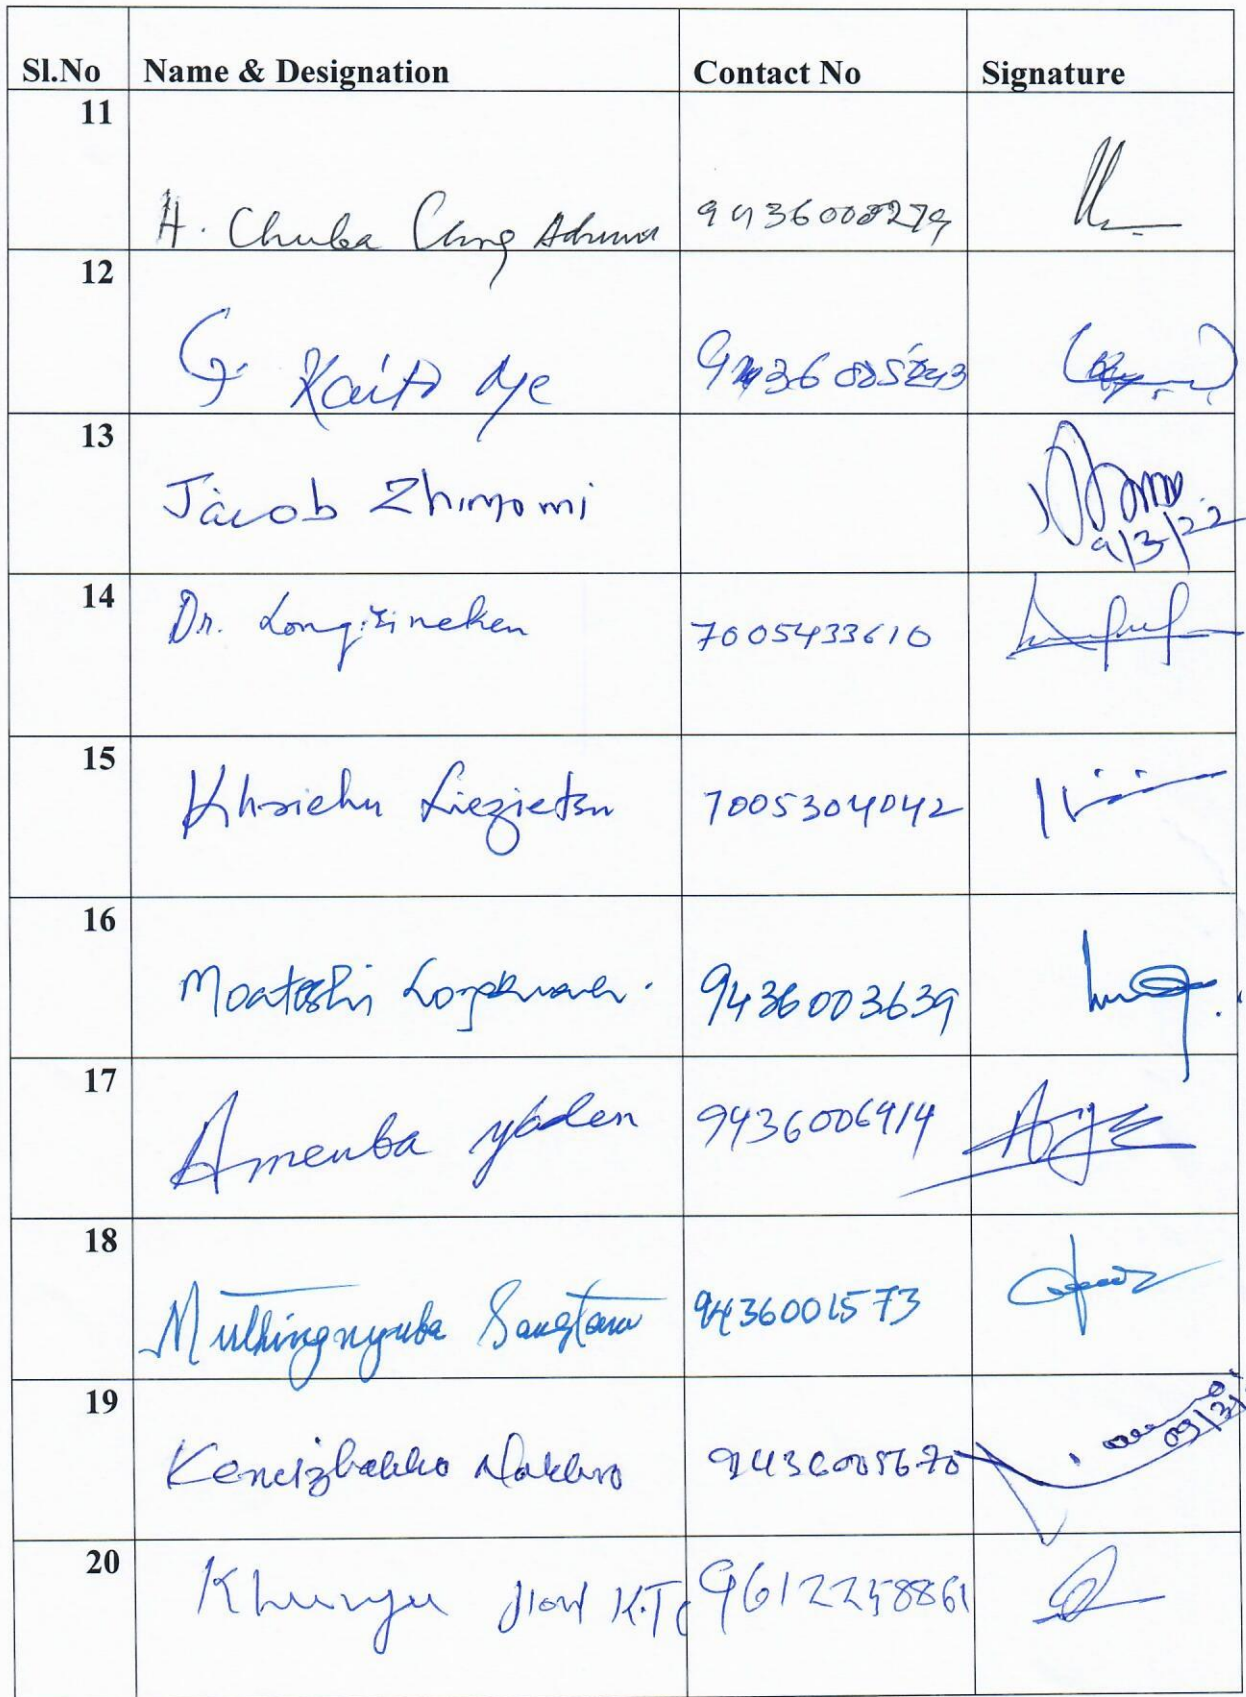 Sl.No Name & Designation Contact No Signature
11 H. Chuba Chang
12 G. Kaito Aye
13 Jacob Zhimomi 9/3/22
14 Dr. Longrineken 7005433610
15 Khriehu Liezietsu 7005304042
16 Moatoshi Longkumer. 9436003639
17 Amenba Yaden 9436006914
18 Muthingnyuba Sangtam 9436001573
19 Keneizhakho Nakhro 9436005670
20 9612258861